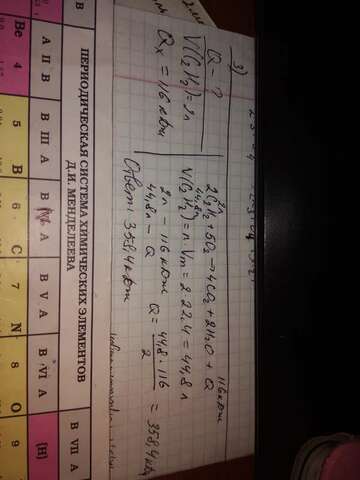 3)
Q - ?
V(C₂H₂) = 2л
Qₓ = 116 кДж
2л 116 кДж
2C₂H₂ + 5O₂ → 4CO₂ + 2H₂O + Q
44,8л
V(C₂H₂) = n · Vm = 2 · 22.4 = 44,8 л
2л - 116 кДж
44,8л - Q
Q = 44,8 · 116 / 2 = 358,4 кДж
Ответ: 358,4 кДж
ПЕРИОДИЧЕСКАЯ СИСТЕМА ХИМИЧЕСКИХ ЭЛЕМЕНТОВ
Д.И. МЕНДЕЛЕЕВА
А II В В III А В А В V А В VI А В VII А
(H)
Be 4 5 B 6 C 7 N 8 O 9